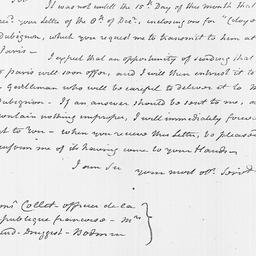 It was not untill the 10th Day of this Month that
your letter of the 8th of Decr, inclosing one for "Citoyen
Dubignon, which you request me to transmit to him at
Paris—
I expect that an opportunity of sending that
to paris will soon offer, and I will then entrust it to
Gentleman who will be careful to deliver it to M
Dubignon— If an answer should be sent to me, a
contain nothing improper, I will immediately forwa
it to You— when you receive this Letter, be pleased
inform me of its having come to your Hands—
I am Sir
your most obt. Servt
Collet— officer de la
publique francoise—
Bodmin